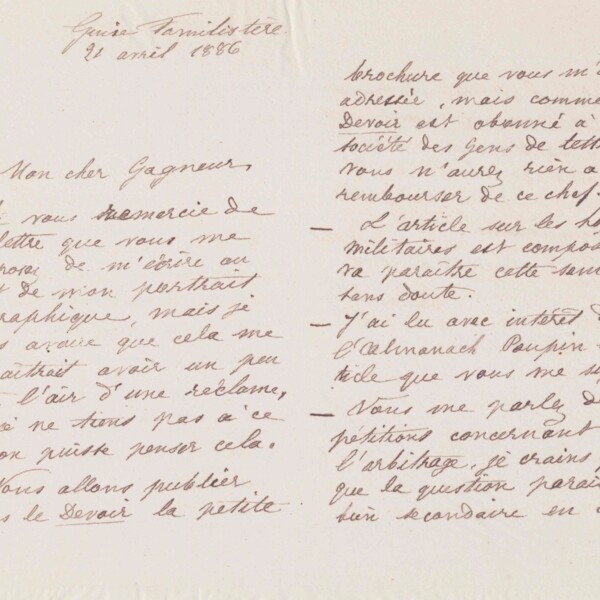 Guise Familistère
21 avril 1886
Mon cher Gagneur,
vous remercie de
lettre que vous me
de m'écrire au
de mon portrait
graphique, mais je
avoue que cela me
aîtrait avoir un peu
l'air d'une réclame,
ne tiens pas à ce
on puisse penser cela.
Nous allons publier
s le Devoir la petite
brochure que vous m'a
adressée, mais comme
Devoir est abonné à
société des gens de lett
vous n'aurez rien à
rembourser de ce chef.
— L'article sur les
militaires est compos
va paraître cette sem
sans doute.
— J'ai lu avec intérêt d
l'Almanach Poupin
ticle que vous me
— Vous me parlez de
pétitions concernant
l'arbitrage, je crains
que la question parai
bien secondaire en